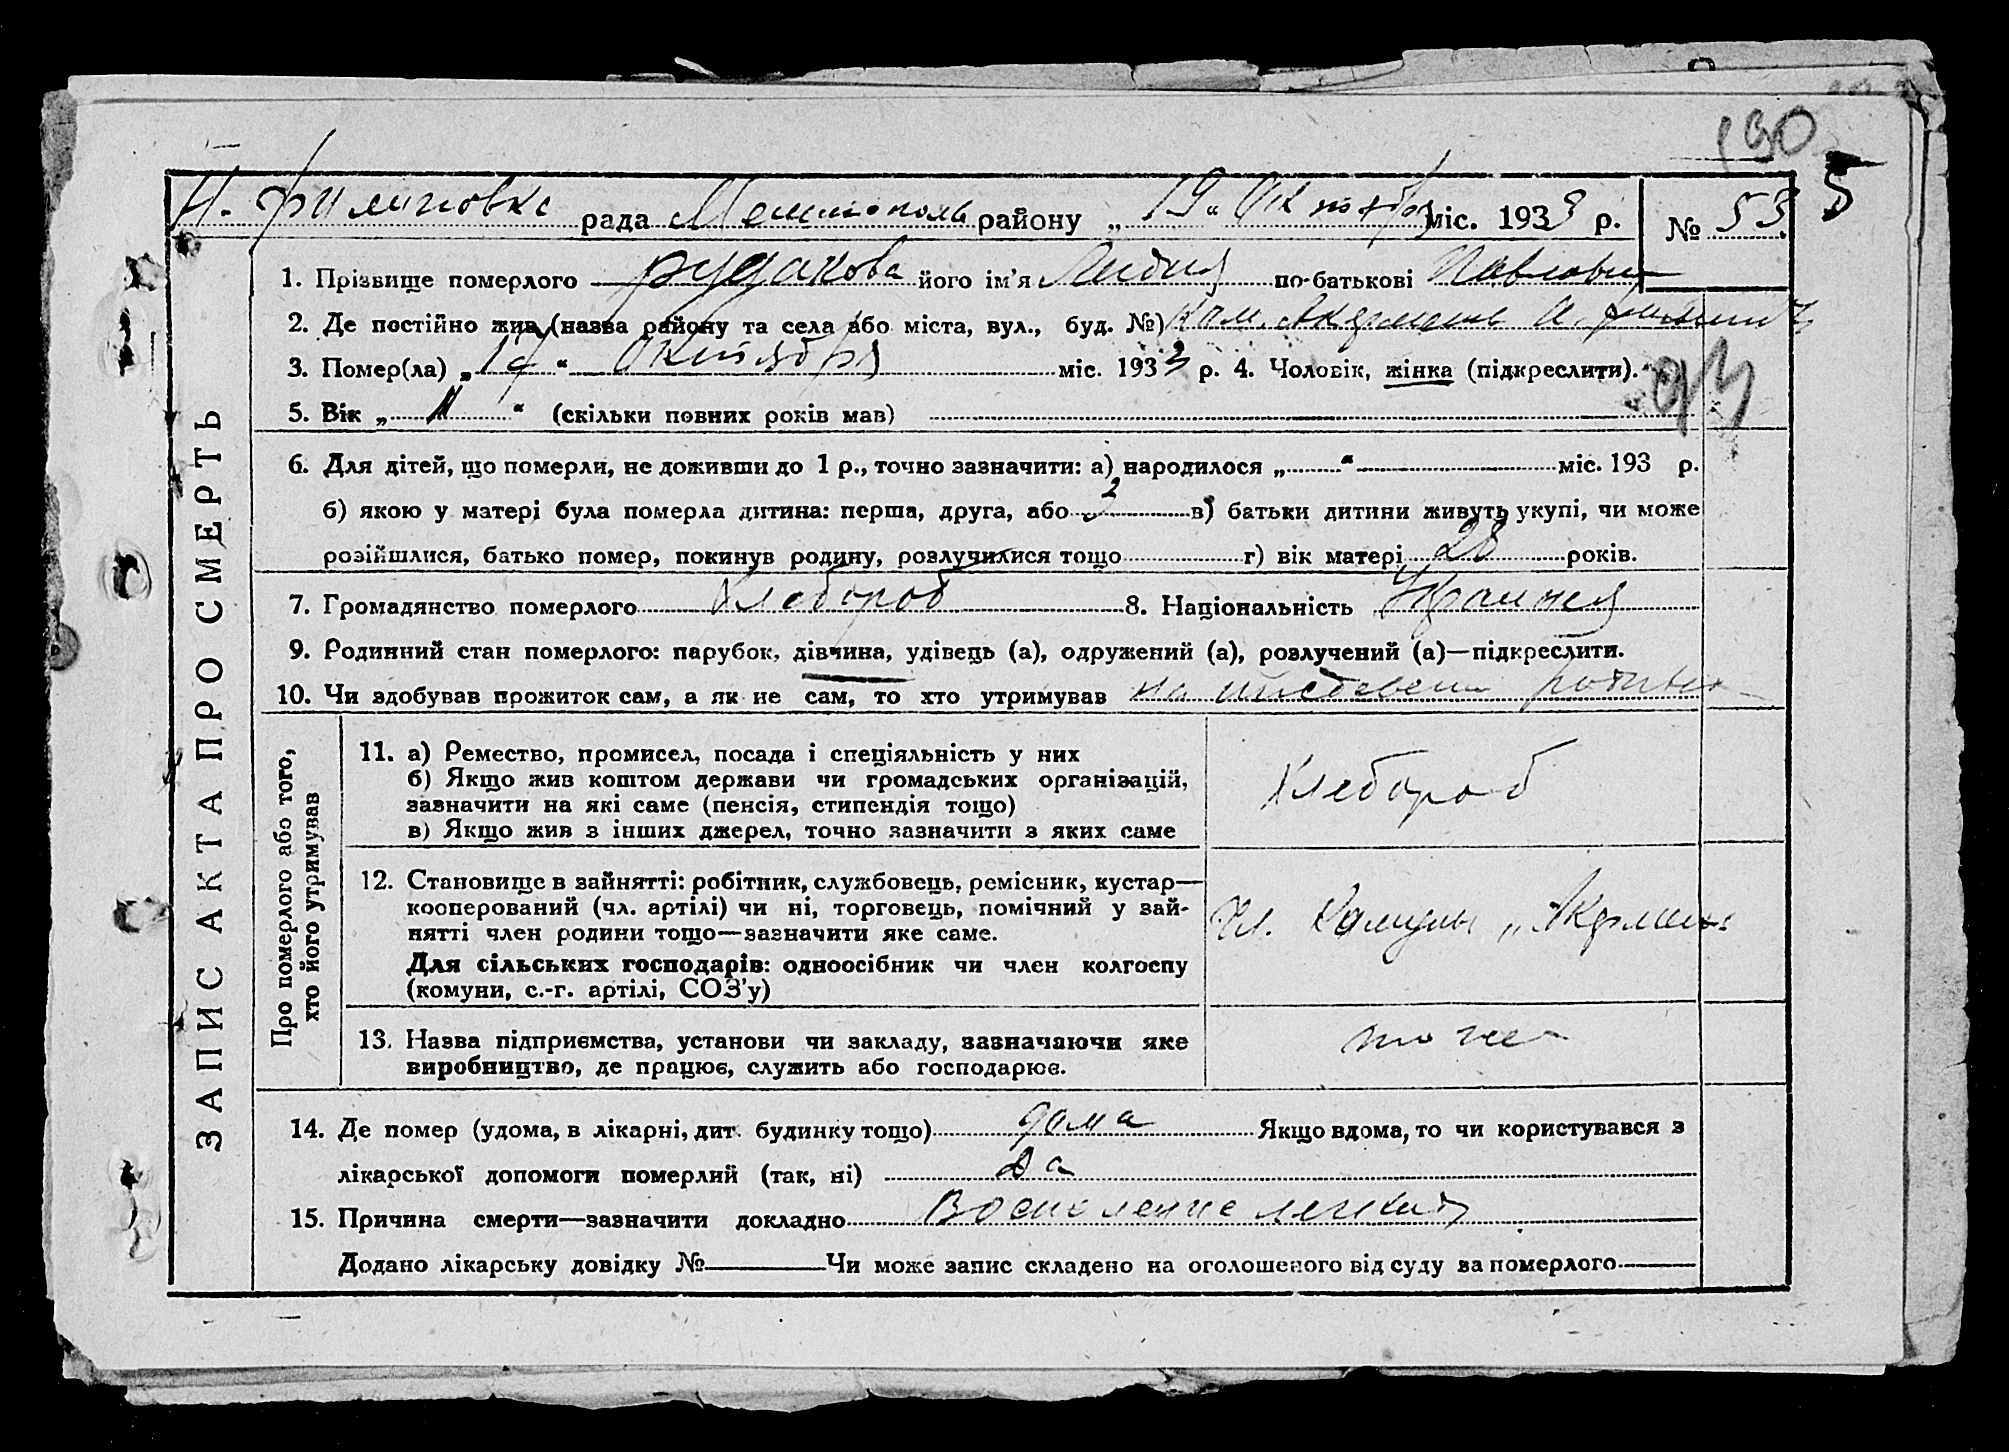 190
Н. Филиповка рада Мелитополь району „19“ Октября міс. 1933 р. № 53 5
ЗАПИС АКТА ПРО СМЕРТЬ
1. Прізвище померлого Рудакова його ім'я Лидия по-батькові Павловн
2. Де постійно жив (назва району та села або міста, вул., буд. №) Ком. Акармень Н. Филипов
3. Помер(ла) „17“ Октября міс. 1933 р. 4. Чоловік, жінка (підкреслити).
5. Вік „11“ (скільки повних років мав)
6. Для дітей, що померли, не доживши до 1 р., точно зазначити: а) народилося „ “ міс. 193 р.
б) якою у матері була померла дитина: перша, друга, або 3 в) батьки дитини живуть укупі, чи може
розійшлися, батько помер, покинув родину, розлучилися тощо г) вік матері 28 років.
7. Громадянство померлого Хлебороб 8. Національність
9. Родинний стан померлого: парубок, дівчина, удівець (а), одружений (а), розлучений (а)—підкреслити.
10. Чи здобував прожиток сам, а як не сам, то хто утримував на
Про померлого або того, хто його утримував
11. а) Ремество, промисел, посада і спеціяльність у них
б) Якщо жив коштом держави чи громадських організацій,
зазначити на які саме (пенсія, стипендія тощо)
в) Якщо жив з інших джерел, точно зазначити з яких саме
Хлебороб
12. Становище в зайнятті: робітник, службовець, ремісник, кустар—
кооперований (чл. артілі) чи ні, торговець, помічний у зай-
нятті член родини тощо—зазначити яке саме.
Для сільських господарів: одноосібник чи член колгоспу
(комуни, с.-г. артілі, СОЗ'у)
Чл. Комуны „Акармень
13. Назва підприємства, установи чи закладу, зазначаючи яке
виробництво, де працює, служить або господарює.
то же
14. Де помер (удома, в лікарні, дит. будинку тощо) дома Якщо вдома, то чи користувався з
лікарської допомоги померлий (так, ні) да
15. Причина смерти—зазначити докладно Воспаление легких
Додано лікарську довідку № Чи може запис складено на оголошеного від суду за померлого